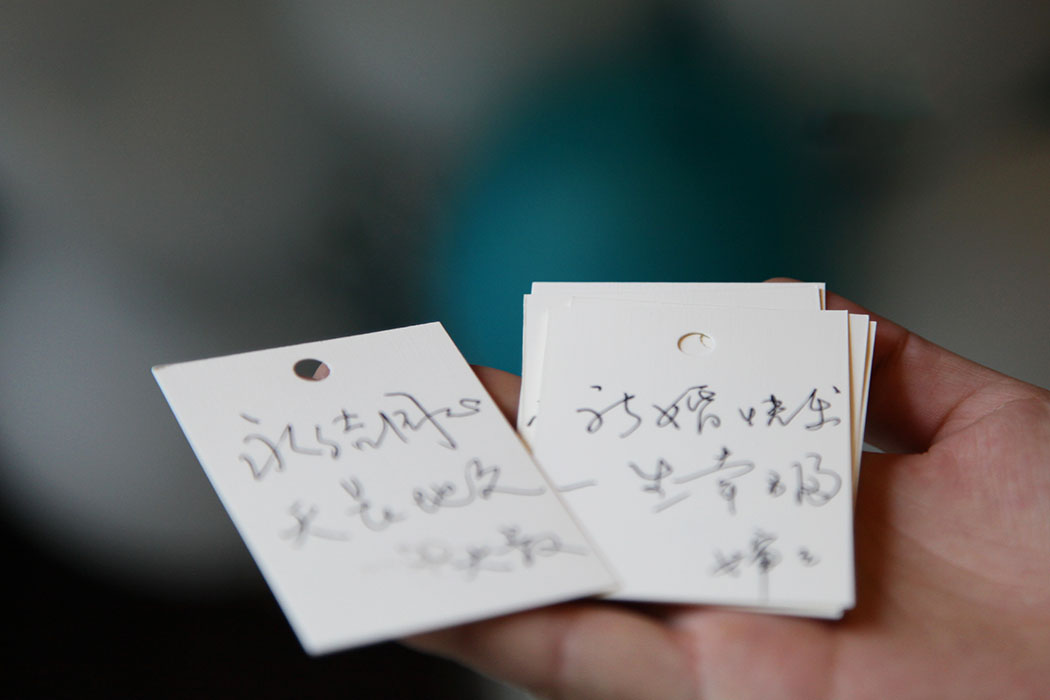 永结同心
天长地久
新婚快乐
一生幸福